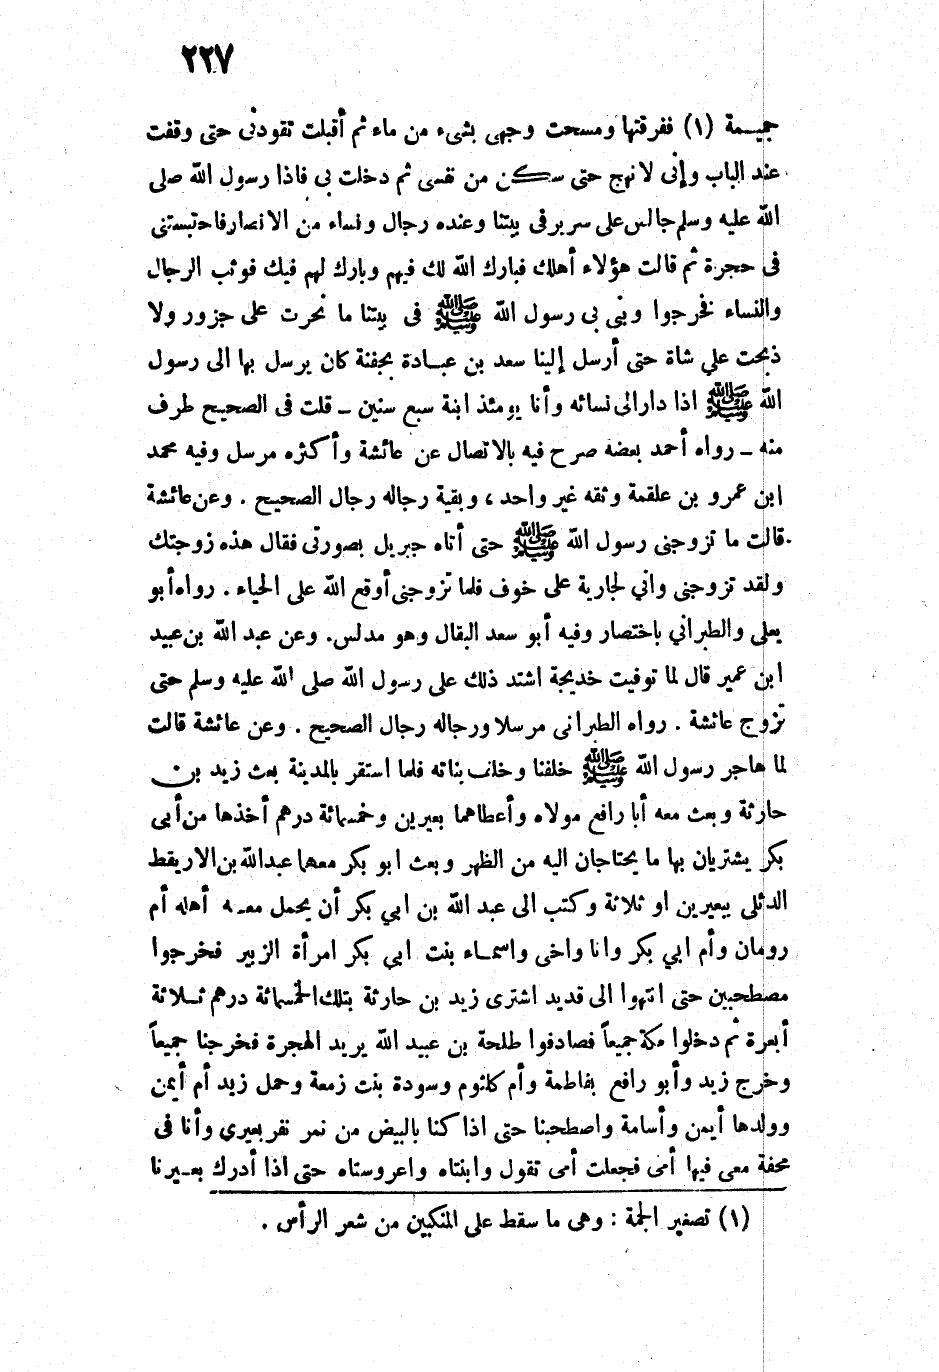 ٢٢٧
جميمة (١) ففرقتها ومسحت وجهى بشىء من ماء ثم أقبلت تقودنى حتى وقفت
عند الباب وإنى لانهج حتى سكن من نفسى ثم دخلت بى فاذا رسول الله صلى
الله عليه وسلم جالس على سرير فى بيتنا وعنده رجال ونساء من الانصار فاحتبستنى
فى حجرة ثم قالت هؤلاء أهلك فبارك الله لك فيهم وبارك لهم فيك فوثب الرجال
والنساء فخرجوا وبنى بى رسول الله ﷺ فى بيتنا ما نحرت على جزور ولا
ذبحت علي شاة حتى أرسل إلينا سعد بن عبادة بجفنة كان يرسل بها الى رسول
الله ﷺ اذا دار الى نسائه وأنا يومئذ ابنة سبع سنين ـ قلت فى الصحيح طرف
منه ـ رواه أحمد بعضه صرح فيه بالاتصال عن عائشة وأكثره مرسل وفيه محمد
ابن عمرو بن علقمة وثقه غير واحد ، وبقية رجاله رجال الصحيح . وعن عائشة
قالت ما تزوجنى رسول الله ﷺ حتى أتاه جبريل بصورتى فقال هذه زوجتك
ولقد تزوجنى واني لجارية على خوف فلما تزوجنى أوقع الله على الحياء . رواه أبو
يعلى والطبراني باختصار وفيه أبو سعد البقال وهو مدلس. وعن عبد الله بن عبيد
ابن عمير قال لما توفيت خديجة اشتد ذلك على رسول الله صلى الله عليه وسلم حتى
تزوج عائشة . رواه الطبرانى مرسلا ورجاله رجال الصحيح . وعن عائشة قالت
لما هاجر رسول الله ﷺ خلفنا وخلف بناته فلما استقر بالمدينة بعث زيد بن
حارثة وبعث معه أبا رافع مولاه وأعطاهما بعيرين وخمسمائة درهم أخذها من أبى
بكر يشتريان بها ما يحتاجان اليه من الظهر وبعث ابو بكر معهما عبد الله بن الاريقط
الدئلى ببعيرين او ثلاثة وكتب الى عبد الله بن ابي بكر أن يحمل معه أهله أم
رومان وأم ابي بكر وانا واخى واسماء بنت ابى بكر امرأة الزبير فخرجوا
مصطحبين حتى انتهوا الى قديد اشترى زيد بن حارثة بتلك الخمسمائة درهم ثلاثة
أبعرة ثم دخلوا مكة جميعاً فصادفوا طلحة بن عبيد الله يريد الهجرة فخرجنا جميعاً
وخرج زيد وأبو رافع بفاطمة وأم كلثوم وسودة بنت زمعة وحمل زيد أم أيمن
وولدها أيمن وأسامة واصطحبنا حتى اذا كنا بالبيض من نمر نفر بعيري وأنا فى
محفة معى فيها أمى فجعلت أمى تقول وابنتاه واعروستاه حتى اذا أدرك بعيرنا
(١) تصغير الجمة : وهى ما سقط على المنكبين من شعر الرأس .